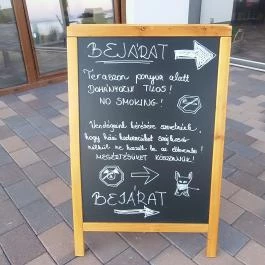 BEJÁRAT
Teraszon ponyva alatt
DOHÁNYOZNI TILOS!
NO SMOKING!
Vendégeink kérésére szeretnénk,
hogy házi kedvencüket szájkosár
nélkül ne hozzák be az étterembe!
MEGÉRTÉSÜKET KÖSZÖNJÜK!
BEJÁRAT